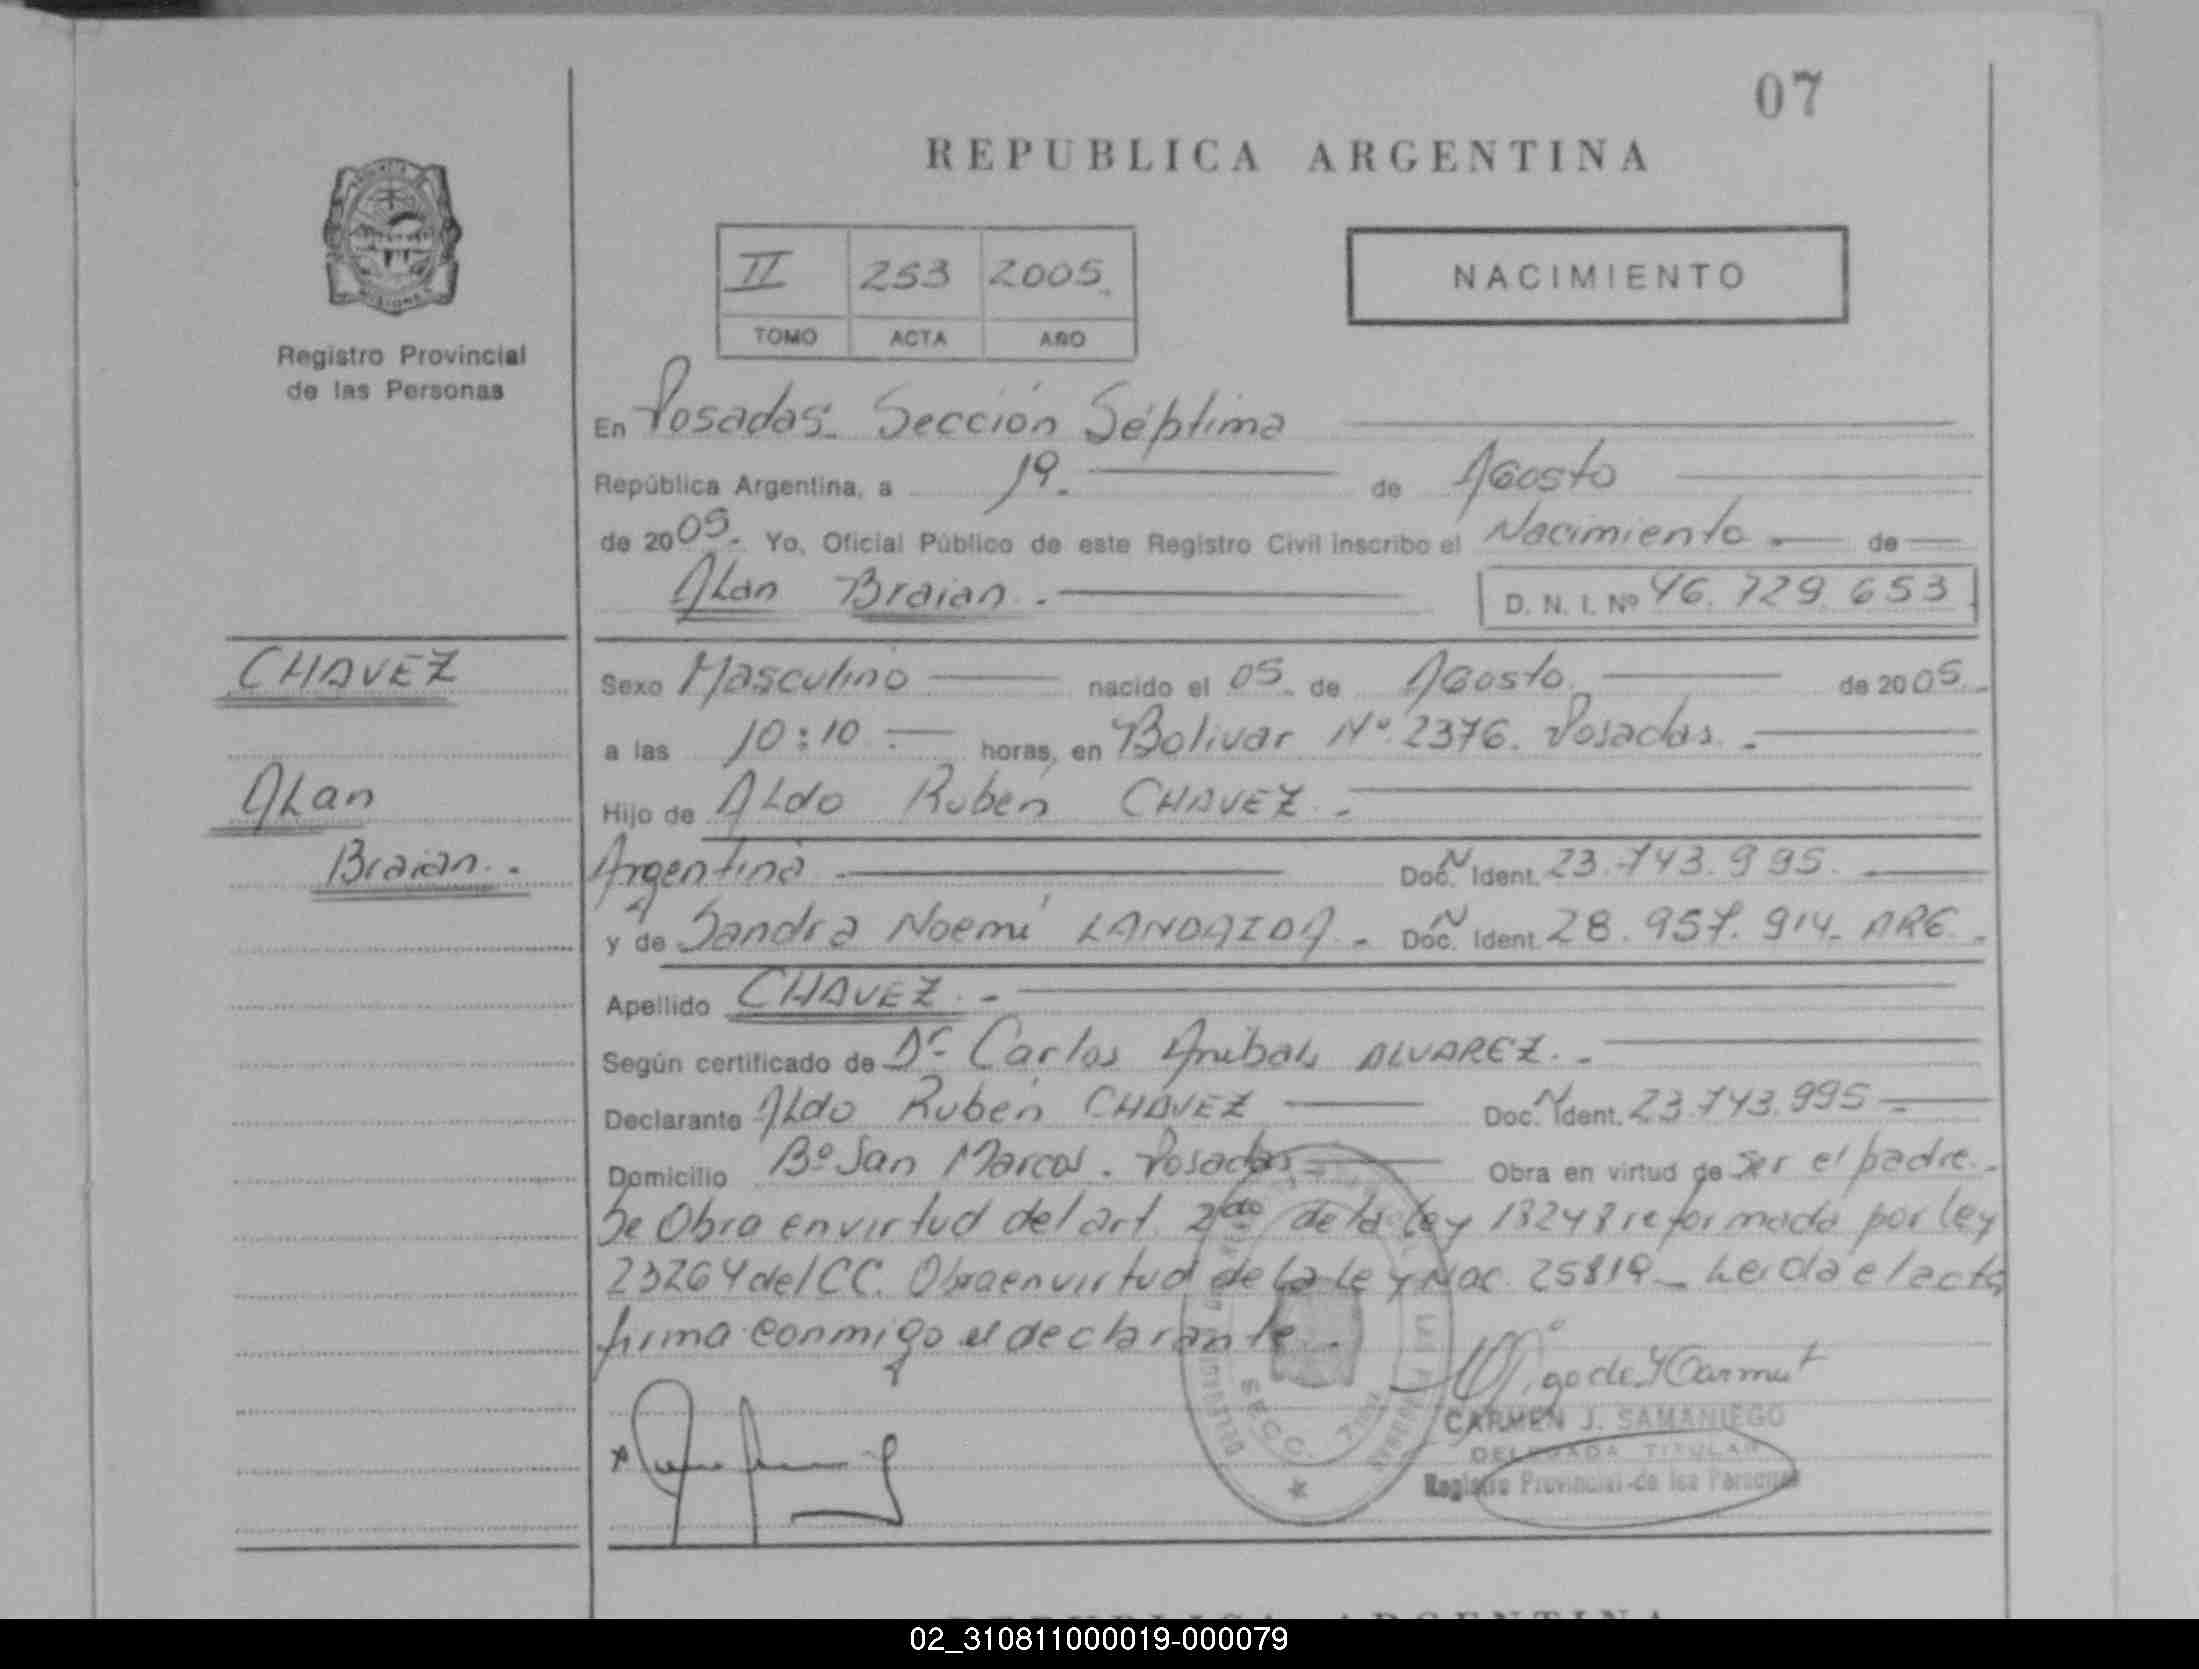 07
REPUBLICA ARGENTINA
II 253 2005.
TOMO ACTA AÑO
NACIMIENTO
Registro Provincial
de las Personas
En Posadas. Sección Séptima
República Argentina, a 19. de Agosto
de 2005. Yo, Oficial Público de este Registro Civil inscribo el Nacimiento.- de
Alan Braian.- D. N. I. Nº 46.729.653
CHAVEZ
Alan
Braian.-
Sexo Masculino nacido el 05. de Agosto. de 2005.-
a las 10:10.- horas, en Bolivar Nº 2376. Posadas.-
Hijo de Aldo Rubén CHAVEZ.-
Argentina Doc. Ident. 23.743.995.
y de Sandra Noemí LANDAIDA.- Doc. Ident. 28.957.914. ARG.-
Apellido CHAVEZ.-
Según certificado de Dr. Carlos Anibal ALVAREZ.-
Declarante Aldo Rubén CHAVEZ Doc. Ident. 23.743.995.-
Domicilio Bº San Marcos. Posadas Obra en virtud de ser el padre.-
Se Obra en virtud del art. 2do de la Ley 18248 reformada por Ley
23264 del CC. Obra en virtud de la Ley Nac. 25819.- Leida el acta
firma conmigo el declarante.-
SECC. 7ma
CARMEN J. SAMANIEGO
DELEGADA TITULAR
Registro Provincial de las Personas
REPUBLICA ARGENTINA
02_310811000019-000079